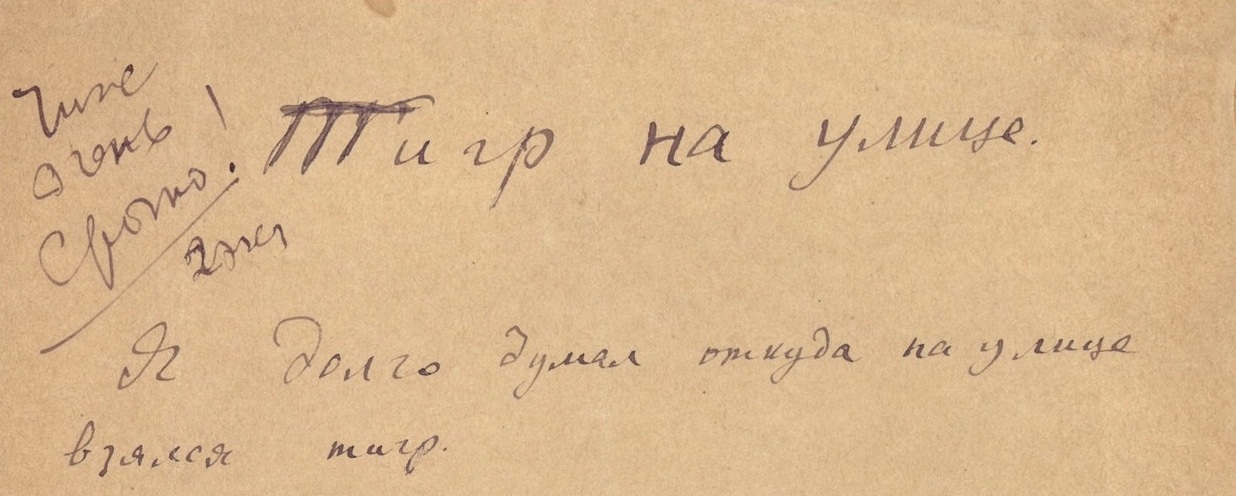 очень
Срочно!
Тигр на улице.
2 экз
Я долго думал откуда на улице
взялся тигр.